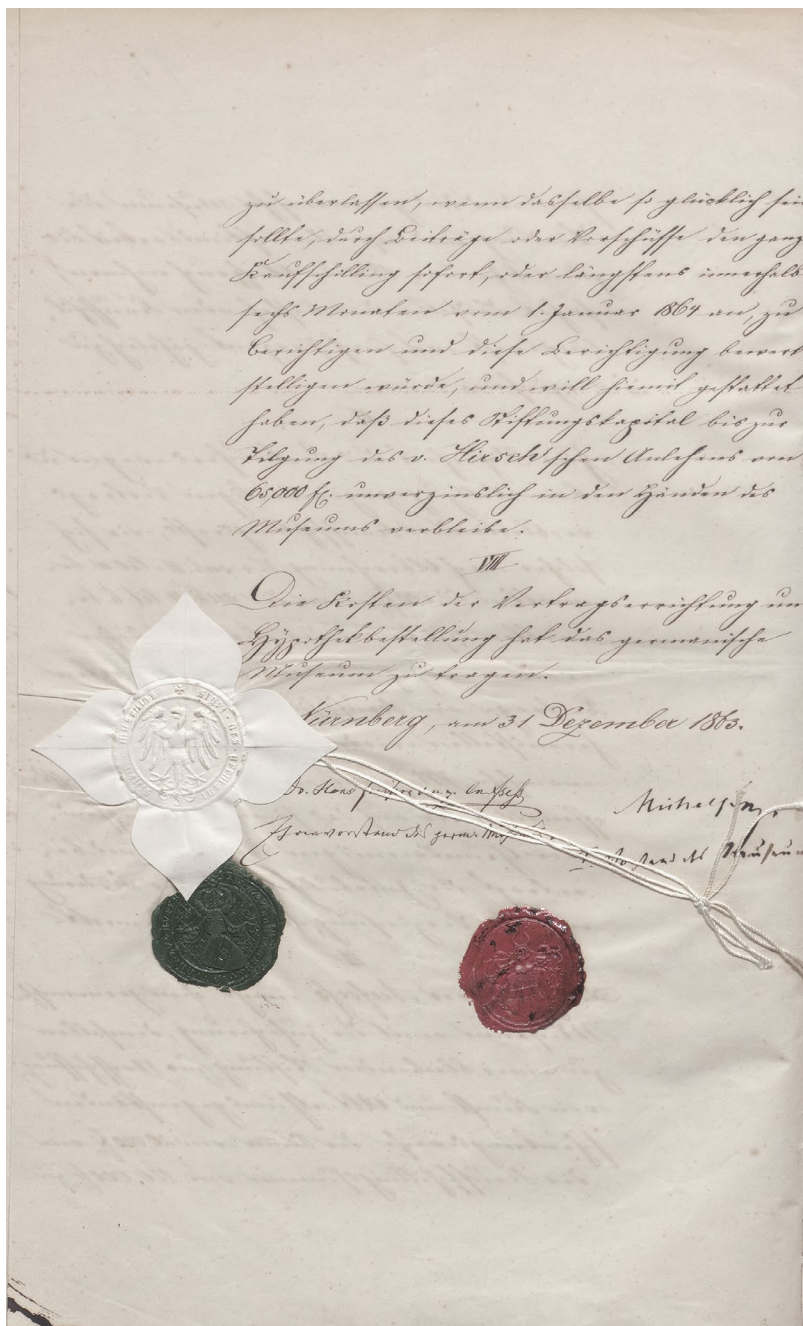 zu überlassen, wenn dasselbe so glücklich sein
sollte, durch Beiträge oder Vorschüsse den ganz
Kaufschilling sofort, oder längstens innerhalb
sechs Monaten vom 1. Januar 1864 an, zu
berichtigen und diese Berichtigung bewerk
stelligen würde, und will hiemit gestattet
haben, daß dieses Stiftungskapital bis zur
Tilgung des v. Hirsch'schen Anlehens von
65,000 fl. unverzinslich in den Händen des
Museums verbleibe.
VIII
Die Kosten der Vertragserrichtung un
Hypothekbestellung hat das germanische
Museum zu tragen.
Nürnberg, am 31 Dezember 1863.
Dr. Hans f. Aufseß
Michelsen,
Ehrenvorstand des germ. Museums
Vorstand des Museum